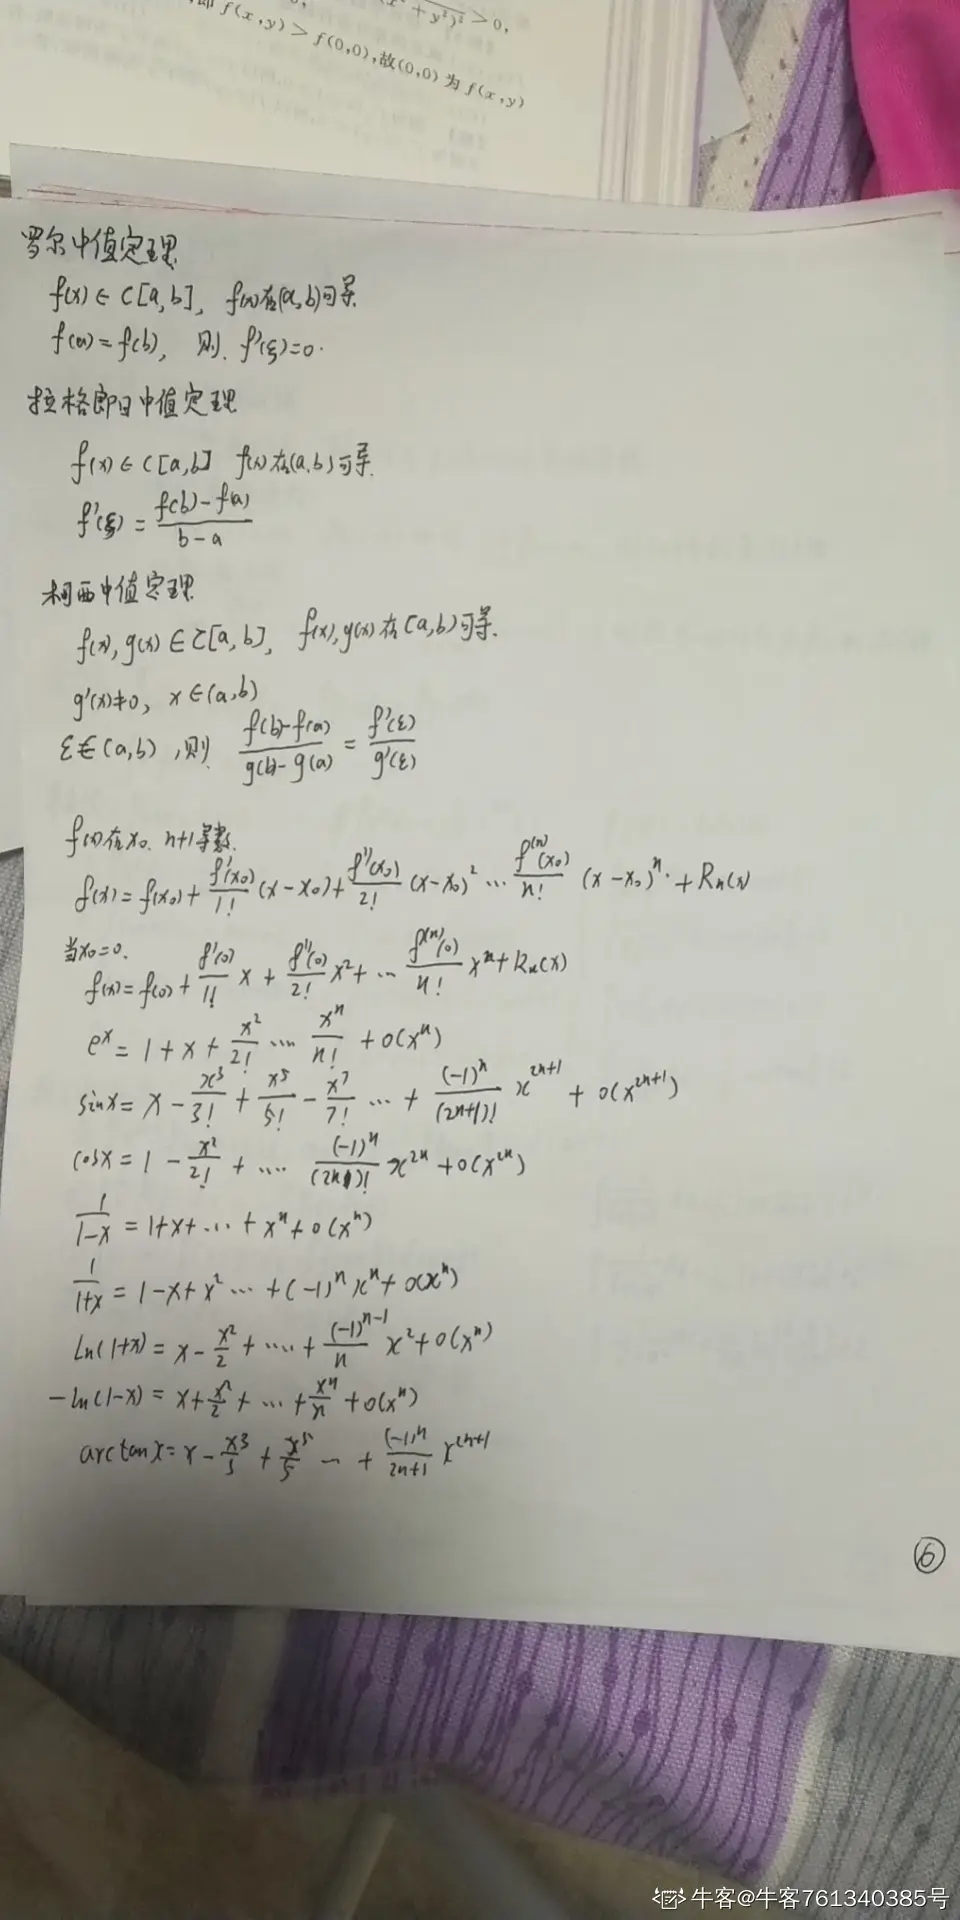 (x² + y²)² > 0,
即 f(x,y) > f(0,0),故(0,0)为 f(x,y)
罗尔中值定理
f(x)∈C[a,b], f(x)在(a,b)可导
f(a)=f(b), 则. f'(ξ)=0.
拉格郎日中值定理
f(x)∈C[a,b] f(x)在(a,b)可导.
f'(ξ) = \frac{f(b)-f(a)}{b-a}
柯西中值定理
f(x),g(x)∈C[a,b], f(x),g(x)在(a,b)可导.
g'(x)≠0, x∈(a,b)
ξ∈(a,b),则 \frac{f(b)-f(a)}{g(b)-g(a)} = \frac{f'(ξ)}{g'(ξ)}
f(x)在x₀ n+1导数.
f(x)=f(x₀)+\frac{f'(x₀)}{1!}(x-x₀)+\frac{f''(x₀)}{2!}(x-x₀)² ... \frac{f^{(n)}(x₀)}{n!}(x-x₀)^n. + Rn(x)
当x₀=0.
f(x)=f(0)+\frac{f'(0)}{1!}x+\frac{f''(0)}{2!}x²+ ... \frac{f^{(n)}(0)}{n!}x^n+Rn(x)
e^x = 1+x+\frac{x²}{2!} .... \frac{x^n}{n!} + o(x^n)
sinx = x-\frac{x³}{3!}+\frac{x⁵}{5!}-\frac{x⁷}{7!} ... + \frac{(-1)^n}{(2n+1)!}x^{2n+1} + o(x^{2n+1})
cosx = 1-\frac{x²}{2!} + .... \frac{(-1)^n}{(2n)!}x^{2n}+o(x^{2n})
\frac{1}{1-x} = 1+x+...+x^n+o(x^n)
\frac{1}{1+x} = 1-x+x² ... +(-1)^n x^n+o(x^n)
Ln(1+x) = x-\frac{x²}{2}+....+\frac{(-1)^{n-1}}{n}x²+o(x^n)
-ln(1-x) = x+\frac{x²}{2}+...+\frac{x^n}{n}+o(x^n)
arctanx = x-\frac{x³}{3}+\frac{x⁵}{5} ... +\frac{(-1)^n}{2n+1}x^{2n+1}
⑥
牛客@牛客761340385号